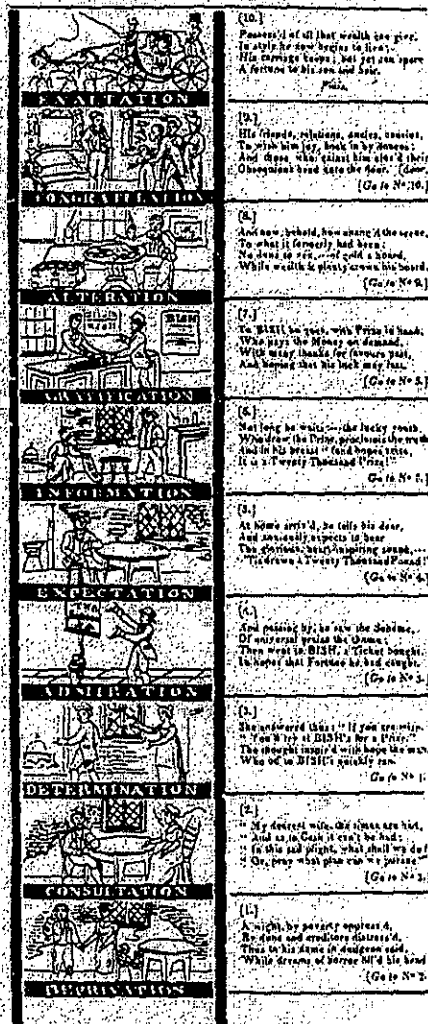 [10.]
Possess'd of all that wealth can give,
In style he now begins to live;
His carriage keeps; but yet can spare
A fortune to his son and heir.
Finis.
EXALTATION
[9.]
His friends, relations, uncles, cousins,
To wish him joy, book in by dozens;
And those, who 'gainst him clos'd their door,
Obsequious bend unto the floor.
[Go to No 10.]
CONGRATULATION
[8.]
And now, behold, how chang'd the scene,
To what it formerly had been;
No duns to of gold a hoard,
While wealth & plenty crown his board.
[Go to No 9.]
ALTERATION
BISH
[7.]
To BISH he goes, with Prize in hand,
Who pays the Money on demand,
With many thanks for favours past,
And hoping that his luck may last.
GRATIFICATION
[6.]
Not long he waits;---the lucky youth,
Who drew the Prize, proclaims the truth
And in his breast fond hopes arise,
It is a Twenty Thousand Prize!"
INFORMATION
[5.]
At home arriv'd, he tells his dear,
And anxiously expects to hear
The glorious, heart-inspiring sound,---
"'Tis drawn A Twenty Thousand Pound!"
EXPECTATION
[4.]
And passing by, he saw the Scheme,
Of universal praise the theme;
Then went to BISH, a Ticket bought,
In hopes that Fortune he had caught.
ADMIRATION
[3.]
She answered thus: "If you are wise,
"You'll try at BISH's for a Prize."
The thought inspir'd with hope the man,
Who off to BISH's quickly ran.
DETERMINATION
[2.]
"My dearest wife, the times are bad,
"And as to Cash it can't be had;
"In this sad plight, what shall we do?
"Or, pray what plan can we pursue"
CONSULTATION
[1.]
A wight, by poverty oppress'd,
By duns and creditors distress'd,
Thus to his dame in dudgeon said,
While dreams of horror fill'd his head
[Go to No 2.
DEPRIVATION